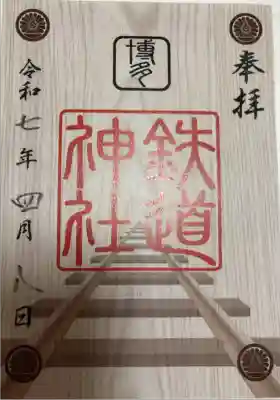 奉拝
博多
鉄道
神社
令和七年四月八日